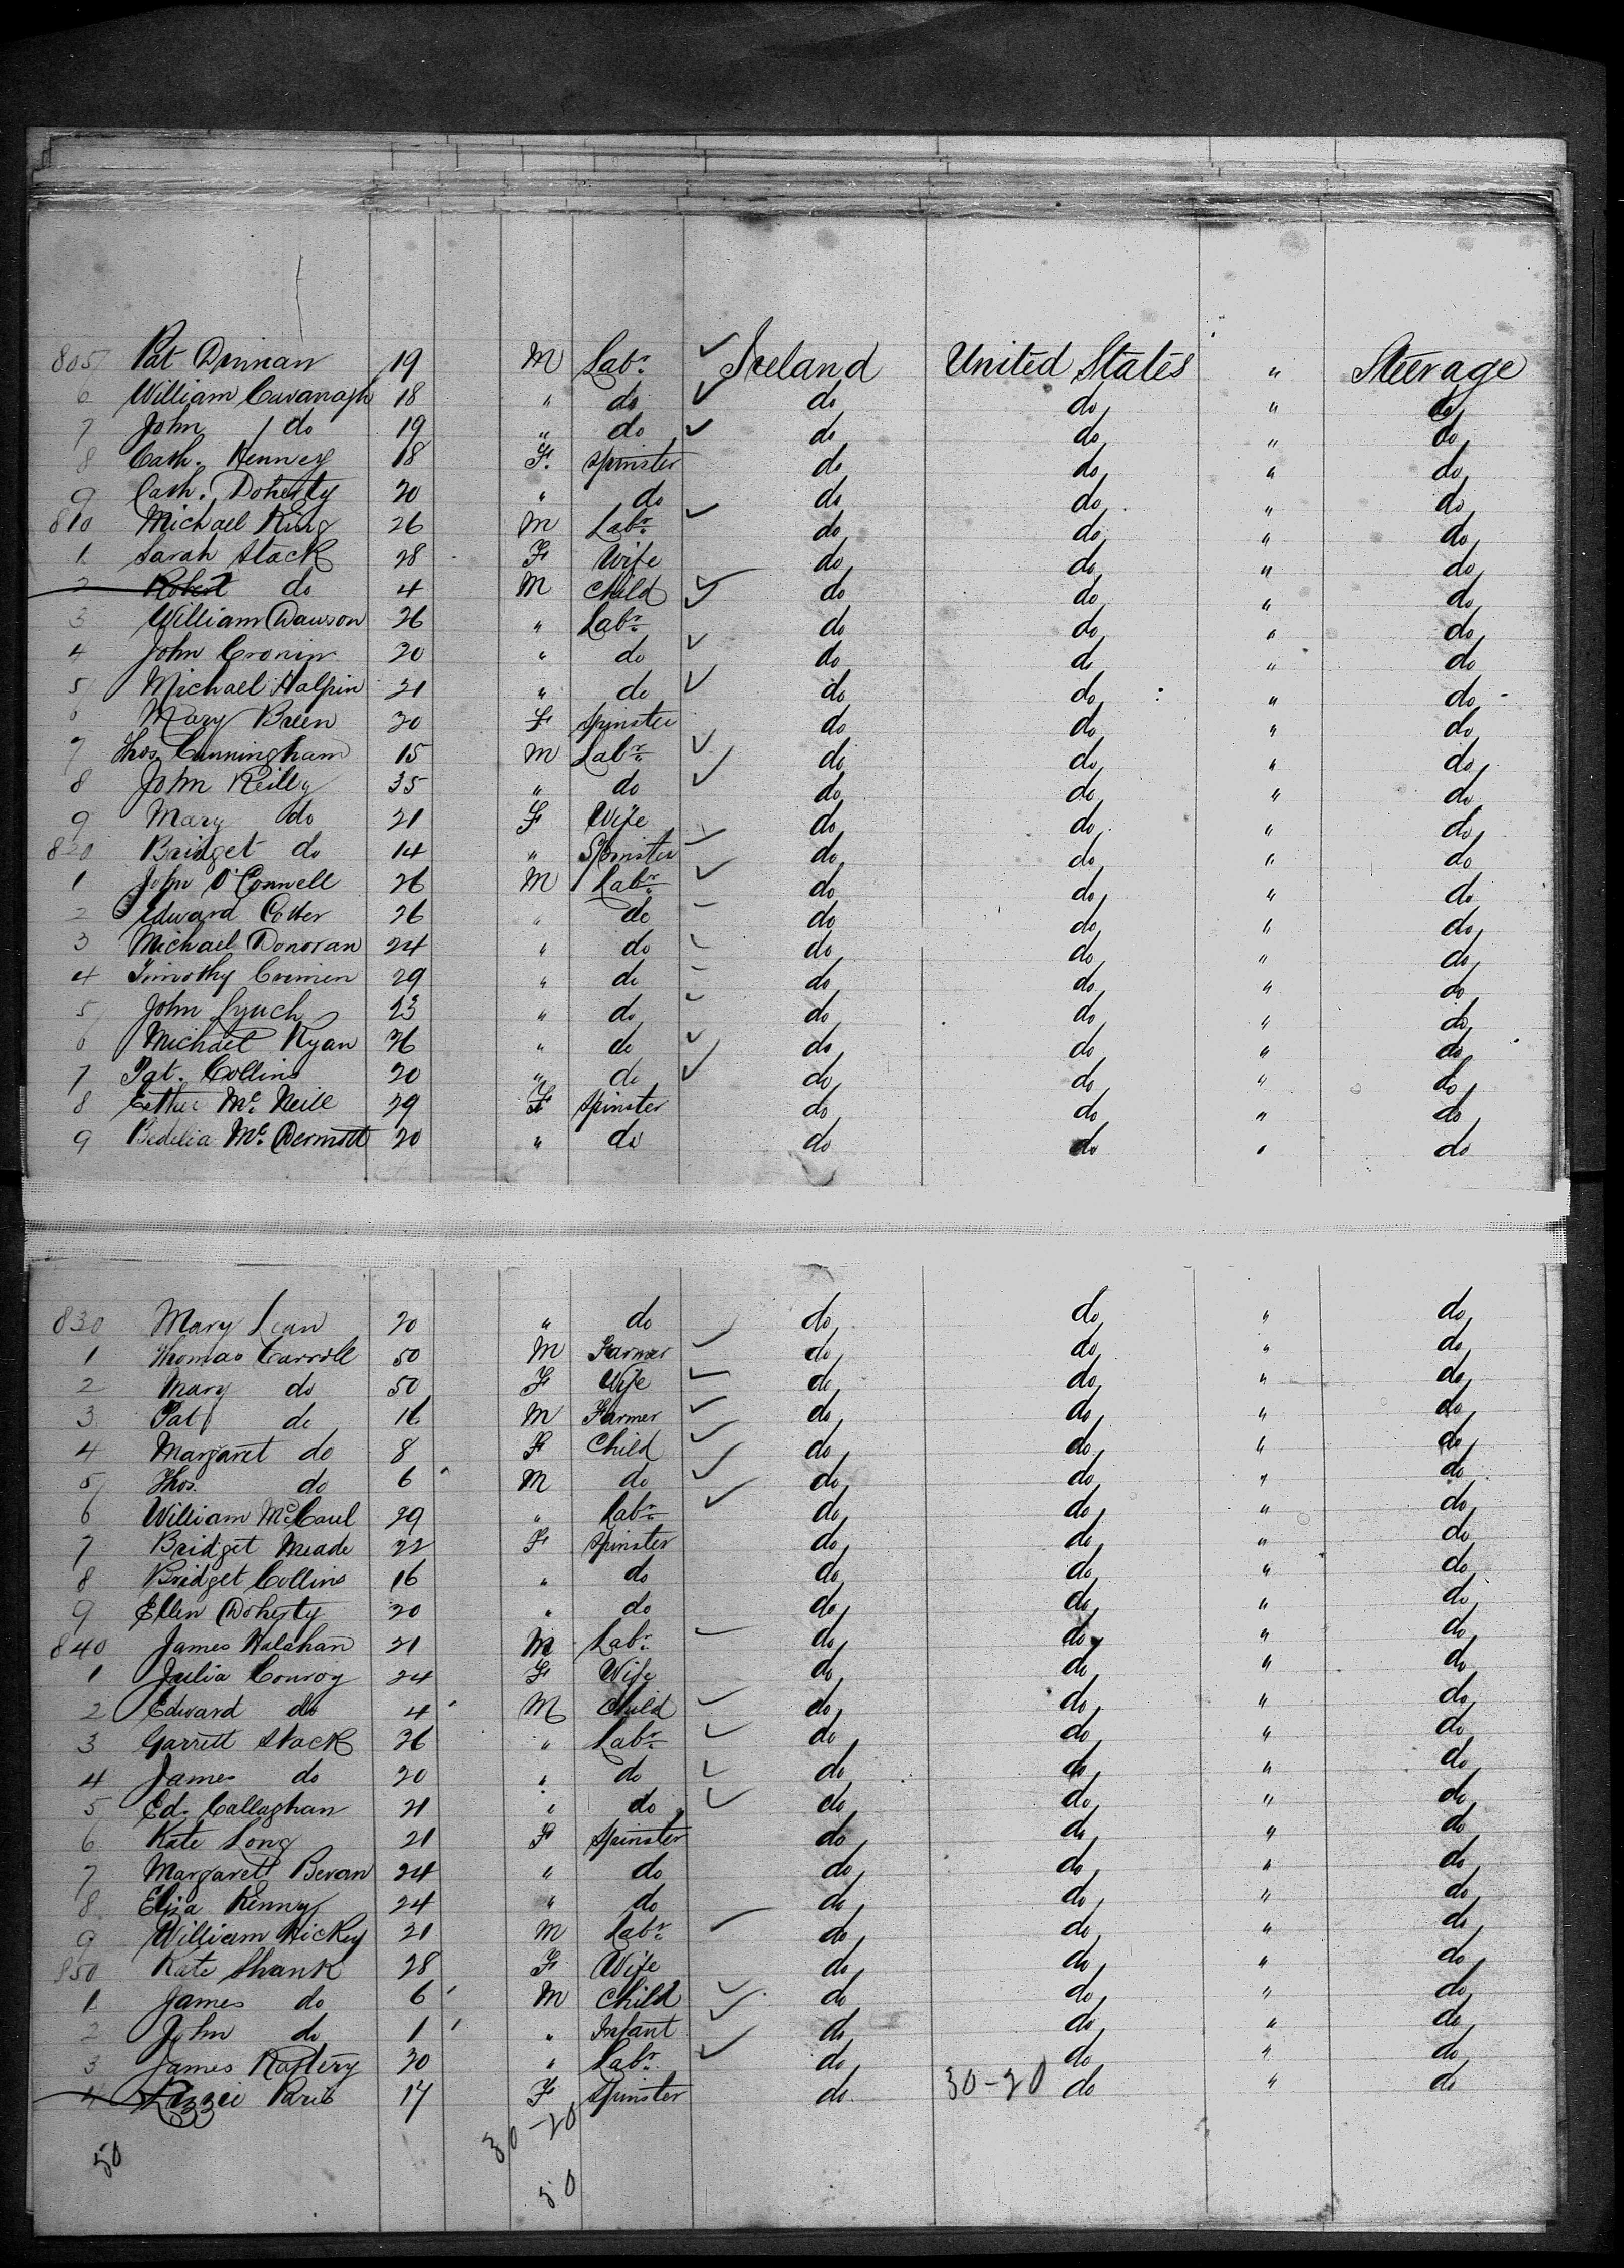 805 Pat Drinan 19 M Labr. Ireland United States " Steerage
6 William Cavanagh 18 " do do do " do
7 John do 19 " do do do " do
8 Cath. Kenney 18 F. Spinster do do " do
9 Cath. Doherty 20 " do do do " do
810 Michael King 26 M Labr. do do " do
1 Sarah Stack 28 F Wife do do " do
2 Robert do 4 M Child do do " do
3 William Dawson 26 " Labr. do do " do
4 John Cronin 20 " do do do " do
5 Michael Halpin 21 " do do do " do
6 Mary Breen 20 F Spinster do do " do
7 Thos. Cunningham 15 M Labr. do do " do
8 John Reilly 35 " do do do " do
9 Mary do 21 F Wife do do " do
820 Bridget do 14 " Spinster do do " do
1 John O'Connell 26 M Labr. do do " do
2 Edward Cotter 26 " do do do " do
3 Michael Donovan 24 " do do do " do
4 Timothy Crimien 29 " do do do " do
5 John Lynch 23 " do do do " do
6 Michael Ryan 26 " do do do " do
7 Pat. Collins 20 " do do do " do
8 Esther Mc. Neill 29 F Spinster do do " do
9 Bedelia Mc. Dermott 20 " do do do " do
830 Mary Lean 20 " do do do " do
1 Thomas Carroll 50 M Farmer do do " do
2 Mary do 50 F Wife do do " do
3 Pat do 16 M Farmer do do " do
4 Margaret do 8 F Child do do " do
5 Thos. do 6 M do do do " do
6 William McCaul 29 " Labr. do do " do
7 Bridget Meade 22 F Spinster do do " do
8 Bridget Collins 16 " do do do " do
9 Ellen Doherty 20 " do do do " do
840 James Halahan 21 M Labr. do do " do
1 Julia Conroy 24 F Wife do do " do
2 Edward do 4 M Child do do " do
3 Garrett Stack 26 " Labr. do do " do
4 James do 20 " do do do " do
5 Ed. Callaghan 21 " do do do " do
6 Kate Long 21 F Spinster do do " do
7 Margarett Bevan 24 " do do do " do
8 Eliza Kenny 24 " do do do " do
9 William Hickey 21 M Labr. do do " do
850 Kate Shank 28 F Wife do do " do
1 James do 6 M Child do do " do
2 John do 1 " Infant do do " do
3 James Raftery 30 " Labr. do do " do
4 Lizzie Paris 17 F Spinster do 30-20 do " do
30-20
50
50